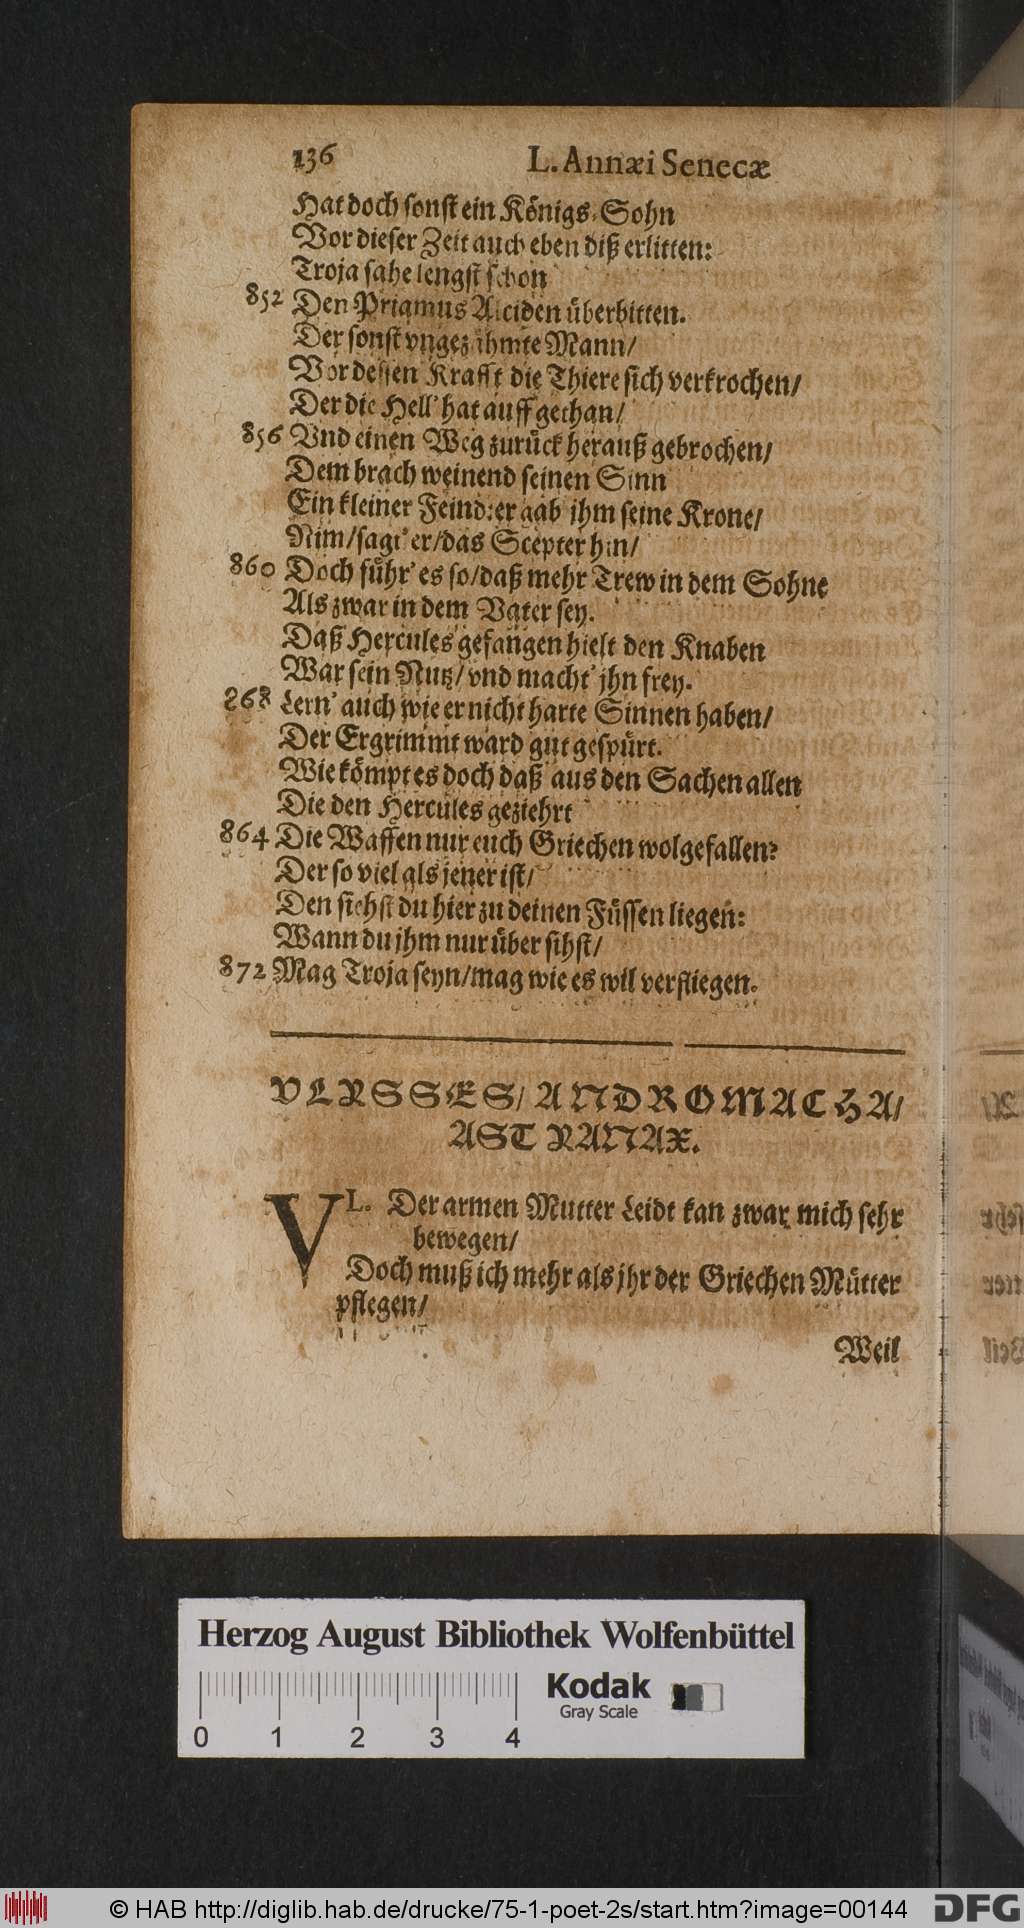 136 L. Annæi Senecæ
Hat doch sonst ein Königs-Sohn
Vor dieser Zeit auch eben diß erlitten:
Troja sahe lengst schon
852 Den Priamus Alciden überbitten.
Der sonst vngezähmte Mann/
Vor dessen Krafft die Thiere sich verkrochen/
Der die Hell' hat auff gethan/
856 Vnd einen Weg zurück herauß gebrochen/
Dem brach weinend seinen Sinn
Ein kleiner Feind: er gab ihm seine Krone/
Nim/sagt' er/das Scepter hin/
860 Doch führ' es so/daß mehr Trew in dem Sohne
Als zwar in dem Vater sey.
Daß Hercules gefangen hielt den Knaben
War sein Nutz/vnd macht' jhn frey.
268 Lern' auch wie er nicht harte Sinnen haben/
Der Ergrimmt ward gut gespürt.
Wie kömpt es doch daß aus den Sachen allen
Die den Hercules geziehrt
864 Die Waffen nur euch Griechen wolgefallen?
Der so viel als jener ist/
Den siehst du hier zu deinen Füssen liegen:
Wann du jhm nur über sihst/
872 Mag Troja seyn/mag wie es wil verfliegen.
VLYSSES/ ANDROMACHA/
ASTYANAX.
VL. Der armen Mutter Leidt kan zwar mich sehr
bewegen/
Doch muß ich mehr als jhr der Griechen Mütter
pflegen/
Weil
Herzog August Bibliothek Wolfenbüttel
Kodak
Gray Scale
0 1 2 3 4
© HAB http://diglib.hab.de/drucke/75-1-poet-2s/start.htm?image=00144 DFG